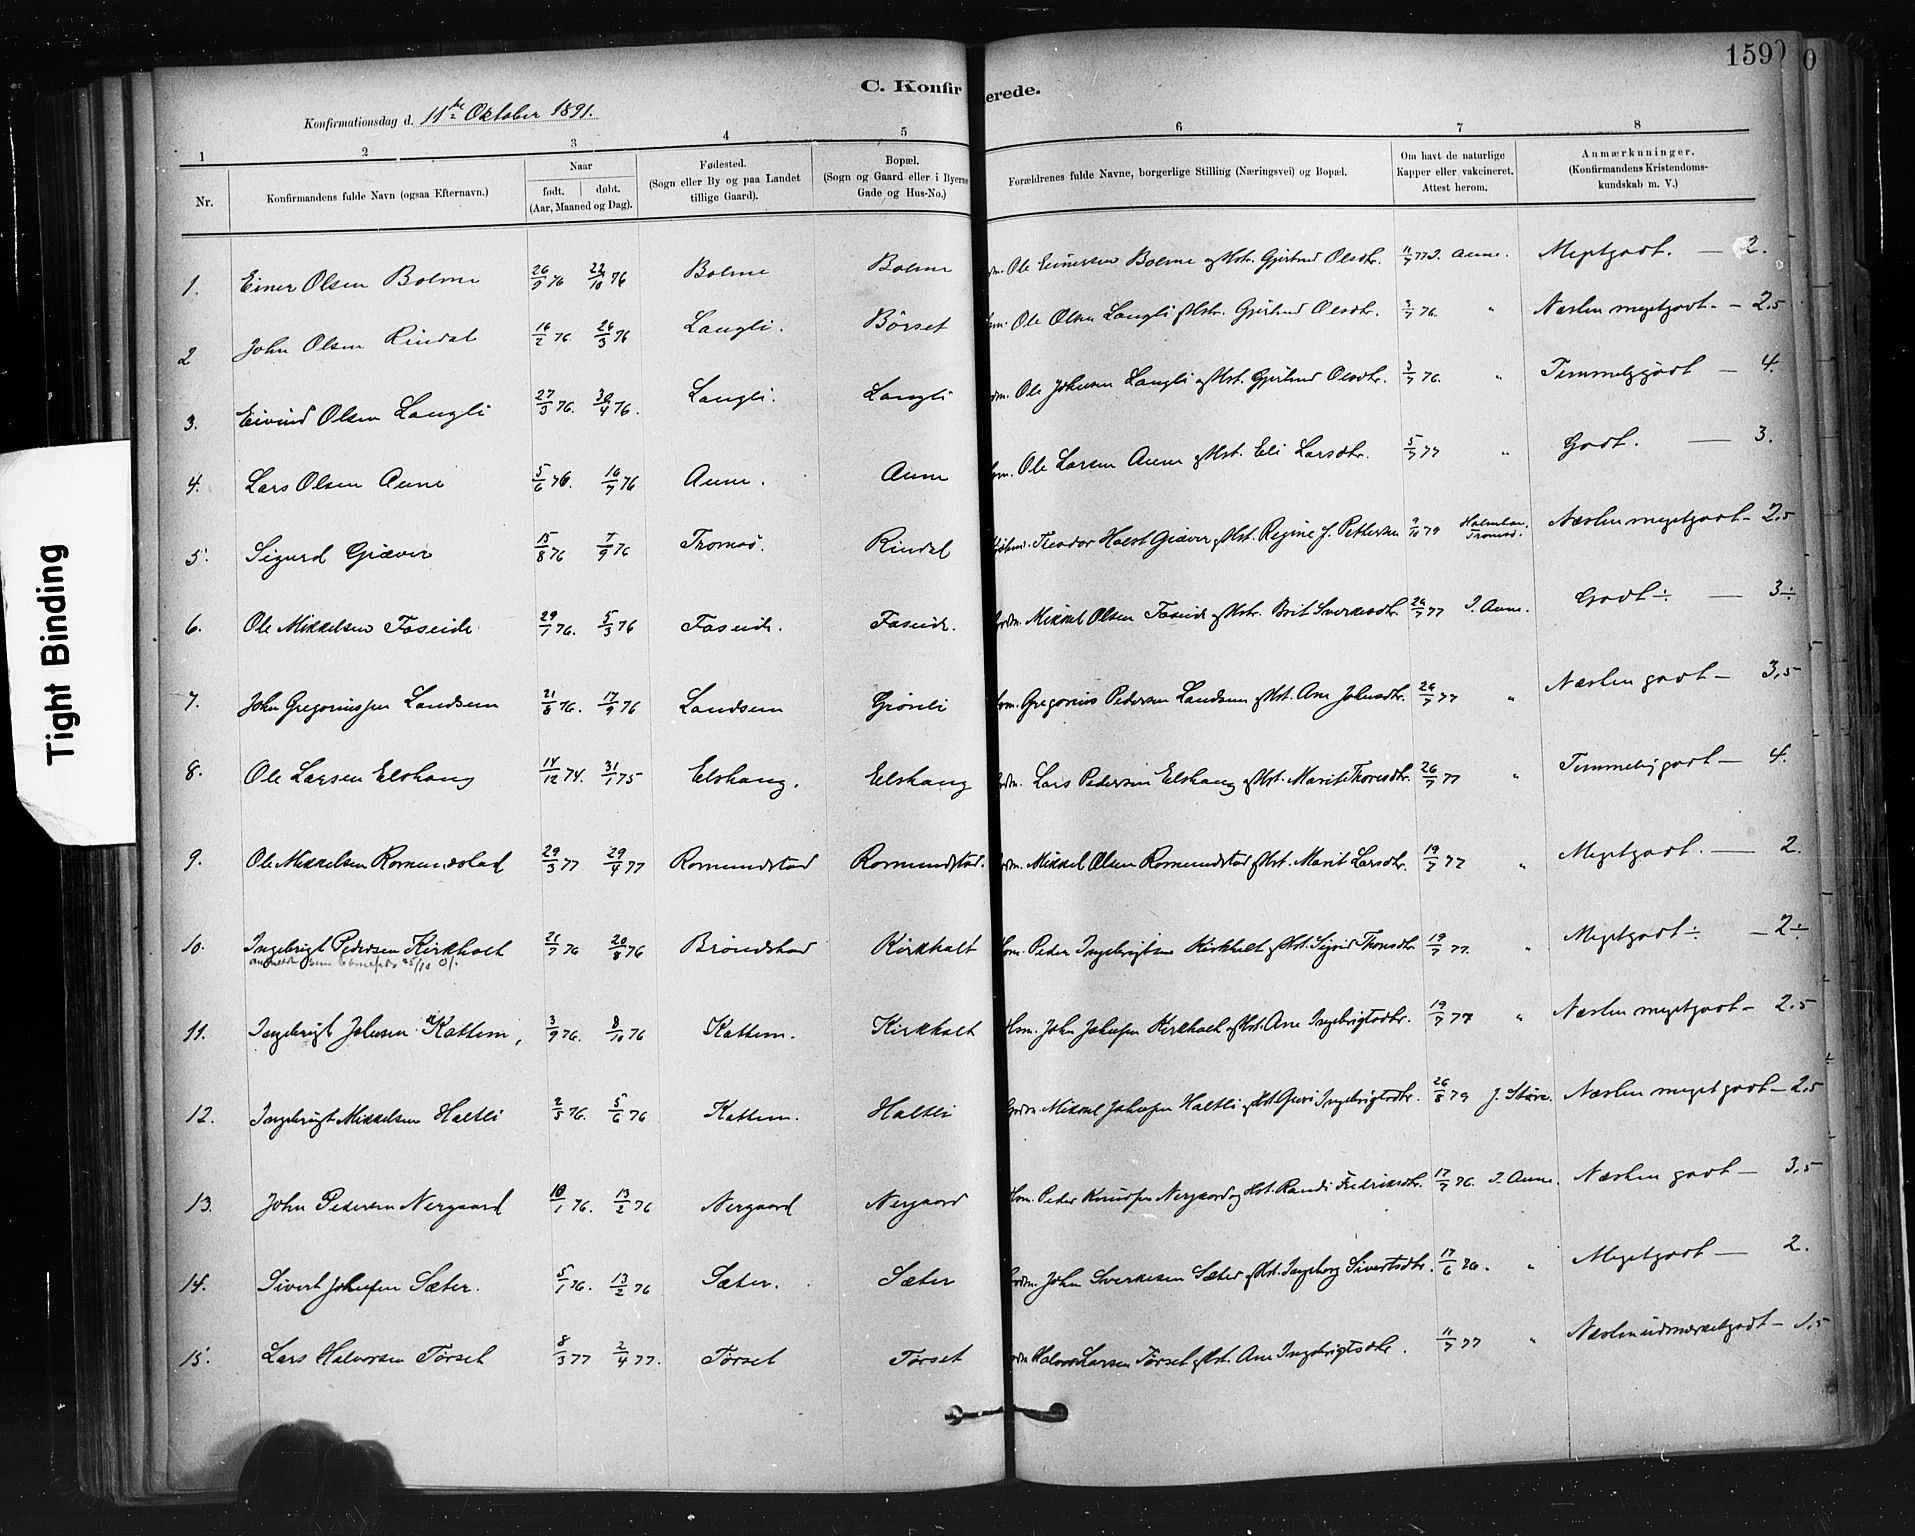 159
0
C. Konfirmerede.
Konfirmationsdag d. 11te Oktober 1891.
1 2 3 4 5 6 7 8
Nr.
Konfirmandens fulde Navn (ogsaa Efternavn.)
Naar
født. døbt.
(Aar, Maaned og Dag).
Fødested.
(Sogn eller By og paa Landet
tillige Gaard).
Bopæl.
(Sogn og Gaard eller i Byerne
Gade og Hus-No.)
Forældrenes fulde Navne, borgerlige Stilling (Næringsvei) og Bopæl.
Om havt de naturlige
Kapper eller vakcineret.
Attest herom.
Anmærkninger.
(Konfirmandens Kristendoms-
kundskab m. V.)
1. Einer Olsen Bolme 26/9 76 22/10 76 Bolme Bolme Ole Einersen Bolme og Hst. Gjertrud Olsdtr. 11/7 77 I. Aune. Megetgodt. — 2.
2 John Olsen Rindal 16/2 76. 26/3 76 Langli. Børset Ole Olsen Langli og Hst. Gjertrud Olsdtr. 3/7 76. " Næsten megetgodt — 2,5
3. Eivind Olsen Langli 27/3 76. 30/4 76. Langli. Langli Ole Johnsen Langli og Hst. Gjertrud Olsdtr. 3/7 76. " Temmeliggodt — 4.
4. Lars Olsen Aune 5/6 76. 16/7 76 Aune. Aune Ole Larsen Aune og Hst. Eli Larsdtr. 5/7 77 " Godt. — 3.
5. Sigurd Giæver 15/8 76 7/9 76 Tromsø. Rindal Teodor Holst Giæver og Hst. Regine J. Pettersen 9/10 79 Tromsø. Næsten megetgodt — 2,5
6. Ole Mikkelsen Faseide 29/1 76. 5/3 76 Faseide. Faseide. Grdm. Mikkel Olsen Faseide og Hst. Brit Sverkesdtr. 26/7 77 I. Aune. Godt ÷ — 3÷
7. John Gregoriussen Landsem 21/8 76. 17/9 76 Landsem Grønli Hsm. Gregorius Pedersen Landsem og Hst. Ane Johnsdtr. 26/7 77 " Næsten godt — 3,5
8. Ole Larsen Elshaug 14/12 74. 31/1 75 Elshaug. Elshaug Grdm. Lars Pedersen Elshaug og Hst. Marit Thoresdtr. 26/7 77 " Temmeliggodt — 4.
9. Ole Mikkelsen Romundstad 29/3 77 29/4 77 Romundstad Romundstad. Grdm. Mikkel Olsen Romundstad og Hst. Marit Larsdtr. 19/7 77 " Megetgodt. — 2.
10. Ingebrigt Pedersen Kirkholt 21/7 76 20/8 76 Brøndstad Kirkholt Hsm. Peder Ingebrigtsen Kirkholt og Hst. Sigrid Thoresdtr. 19/7 77. " Megetgodt ÷ — 2÷
11. Ingebrigt Johnsen Kattem, 3/9 76. 8/10 76 Kattem. Kirkholt Hsm. John Johnsen Kirkholt og Hst. Ane Ingebrigtsdtr. 19/7 77 " Næsten megetgodt — 2,5
12. Ingebrigt Mikkelsen Haltli 2/5 76. 5/6 76 Kattem. Haltli Grdm. Mikkel Johnsen Haltli og Hst. Guri Ingebrigtsdtr. 26/8 79 J. Støre. Næsten meget godt — 2,5
13. John Pedersen Nergaard 10/1 76. 13/2 76 Nergaard Nergaard Hsm. Peder Knudsen Nergaard og Hst. Randi Fredriksdtr. 17/7 76. I. Aune. Næsten godt — 3,5
14. Sivert Johnsen Sæter. 5/1 76. 13/2 76 Sæter. Sæter Grdm. John Sverkesen Sæter og Hst. Ingeborg Sivertsdtr. 17/6 76. " Megetgodt — 2.
15. Lars Halvorsen Tørset 8/3 77 2/4 77. Tørset Tørset Grdm. Halvor Larsen Tørset og Hst. Ane Ingebrigtsdtr. 11/7 77 " Næsten udmærketgodt — 1,5
Tight Binding